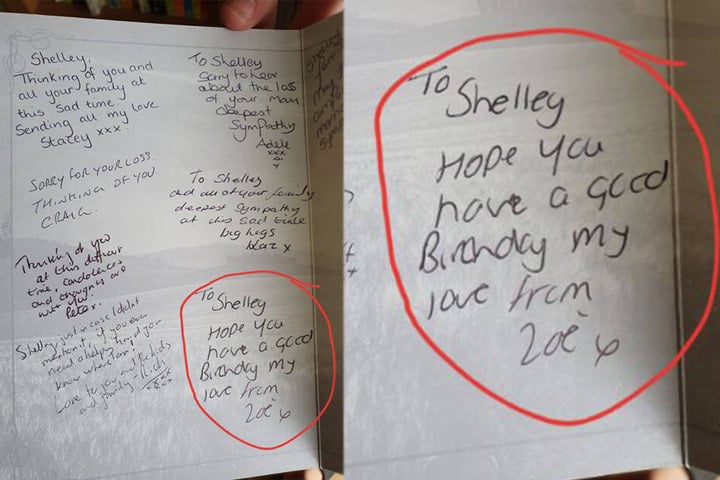 Shelley,
Thinking of you and
all your family at
this sad time.
Sending all my love
Stacey xxx.
To Shelley
Sorry to hear
about the loss
of your mam
deepest
Sympathy
Adele
xxx
SORRY FOR YOUR LOSS
THINKING OF YOU
CRAIG.
To Shelley
and all of your family
deepest Sympathy
at this sad time
big hugs
x
Thinking of you
at this difficult
time, condolences
and thoughts are
with you.
Peter.
Shelley, just in case I didn't
mention it, if you ever
need a helping hand you
know where I am,
Love to you and the kids
and family. Rich
xxxx
To Shelley
Hope you
have a good
Birthday my
love from
Zoë x
To
Shelley
Hope you
have a good
Birthday my
love from
Zoë x